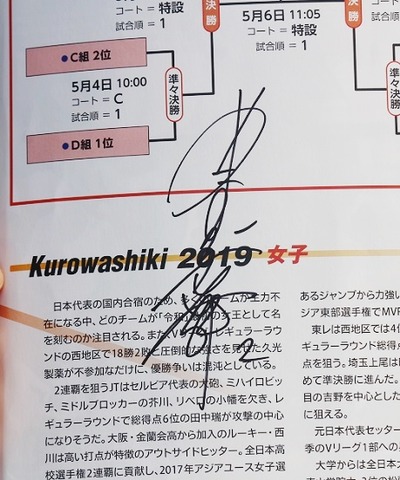 コート＝特設
試合順＝1
決勝
5月6日 11:05
コート＝特設
試合順＝1
決
C組 2位
5月4日 10:00
コート＝C
試合順＝1
準々決勝
準々決勝
D組 1位
Kurowashiki 2019 女子
日本代表の国内合宿のため、
不在になる中、どのチームが「令和
を刻むのか注目される。また、V
ンドの西地区で18勝2敗と圧倒的な強さを見せた久光
製薬が不参加なだけに、優勝争いは混沌としている。
2連覇を狙うJTはセルビア代表の大砲、ミハイロビッ
チ、ミドルブロッカーの芥川、リベロの小幡を欠き、レ
ギュラーラウンドで総得点6位の田中瑞が攻撃の中心
になりそうだ。大阪・金蘭会高から加入のルーキー・西
川は高い打点が特徴のアウトサイドヒッター。全日本高
校選手権2連覇に貢献し、2017年アジアユース女子選
あるジャンプから力強い
ジア東部選手権でMVP
東レは西地区では4位
ギュラーラウンド総得点
点を狙う。埼玉上尾は
めて準決勝に進んだ。
目の吉野を中心とした
に狙える。
元日本代表セッター
季のVリーグ1部への
大学からは全日本大
2